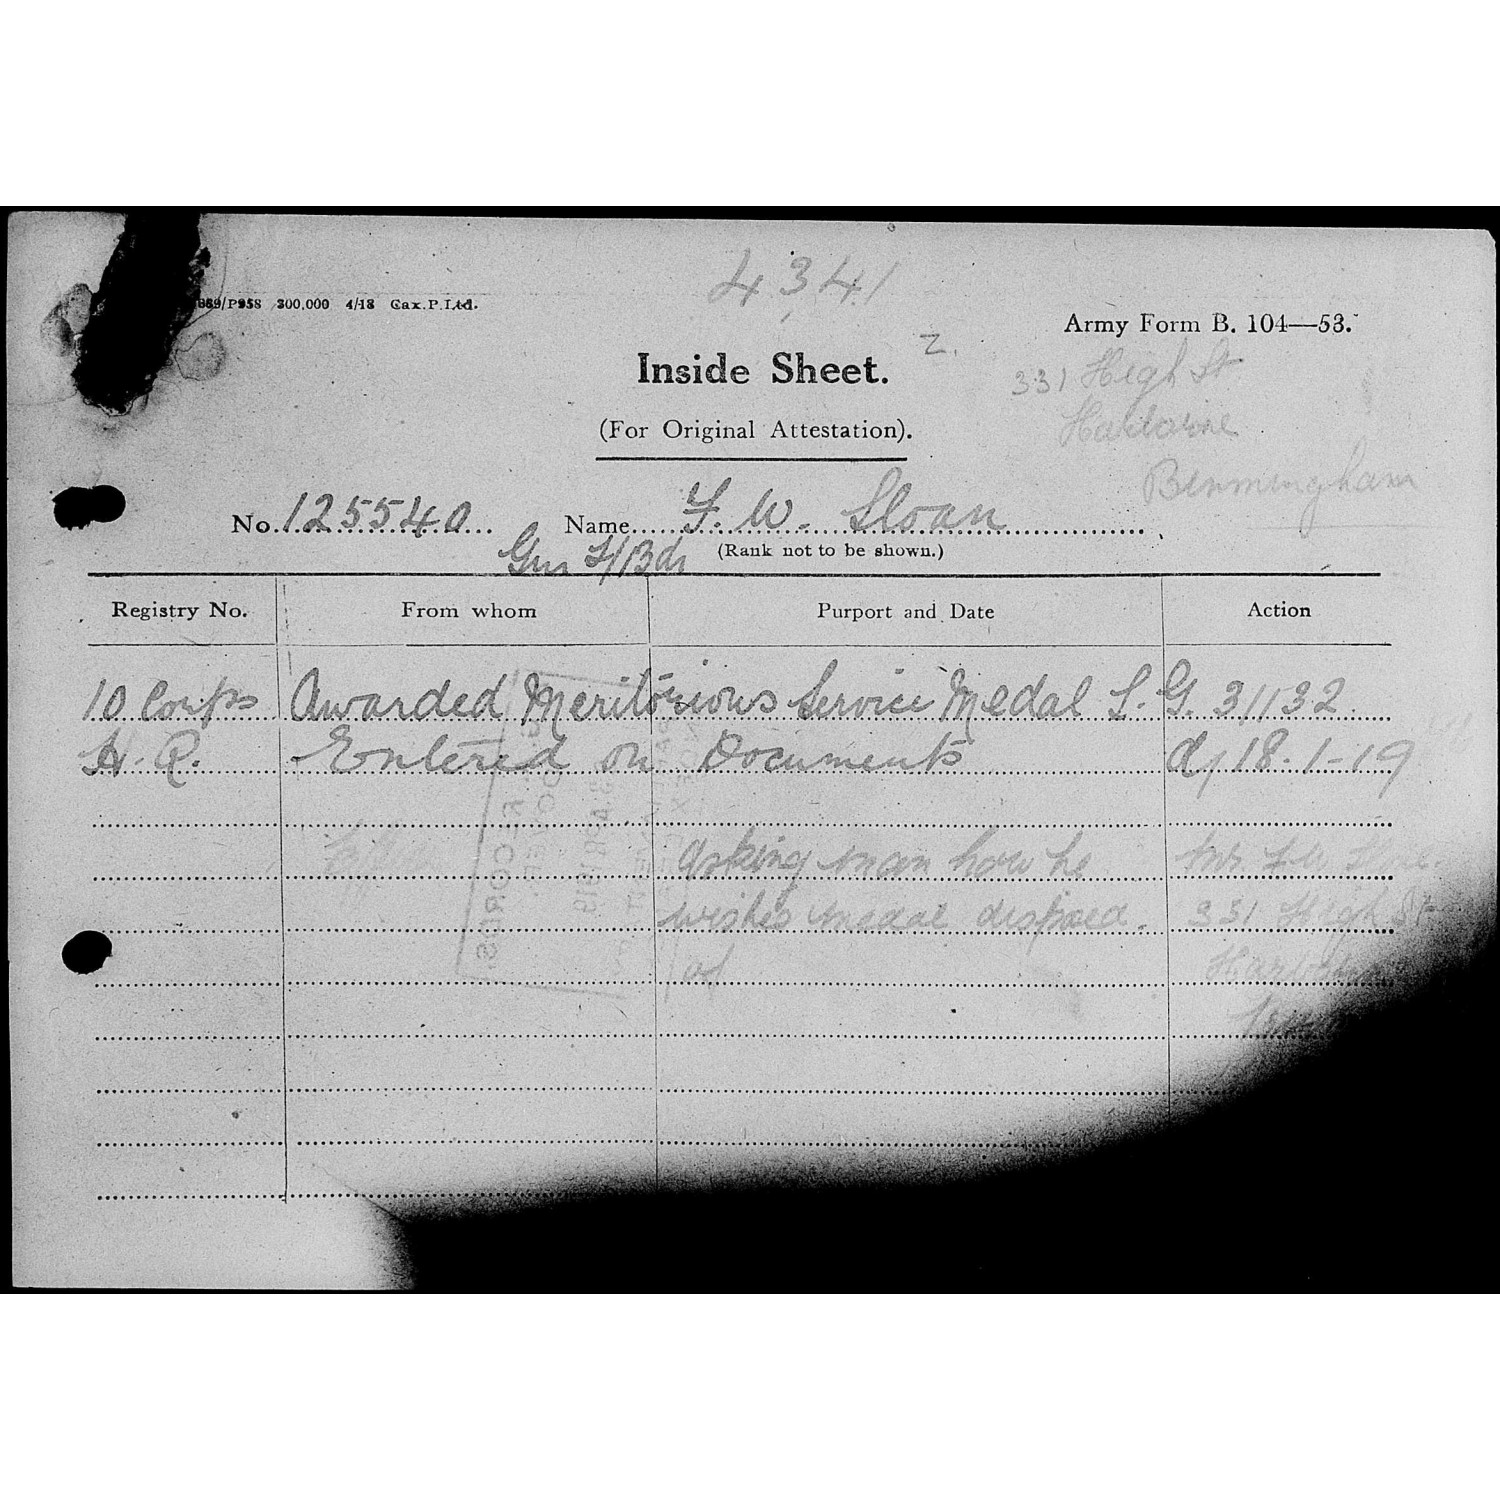 4341
869/P958 300,000 4/18 Gax.P.Ltd.
Army Form B. 104—53.
Z.
Inside Sheet.
331 High St
Harborne
Birmingham
(For Original Attestation).
No. 125540 Name F. W. Sloan
Gnr L/Bdr (Rank not to be shown.)
Registry No. From whom Purport and Date Action
10 Corps Awarded Meritorious Service Medal L.G. 31132
H.Q. Entered on Documents 18-1-19
asking man how he Mr. F W
wishes medal disposed 331 High St
of Harborne